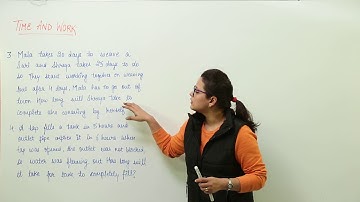 TIME AND WORK
3 Mala takes 20 days to weave a
Sari and Shreya takes 25 days to do
so They start working together on weaving
but after 4 days, Mala has to go out of
town. How long will Shreya take to
complete the weaving by herself
4 A tap fills a tank in 5 hours and
outlet pipe empties it in 6 hours when
tap was opened, the outlet was not blocked,
so water was flowing out How long will
it take for tank to completely fill?